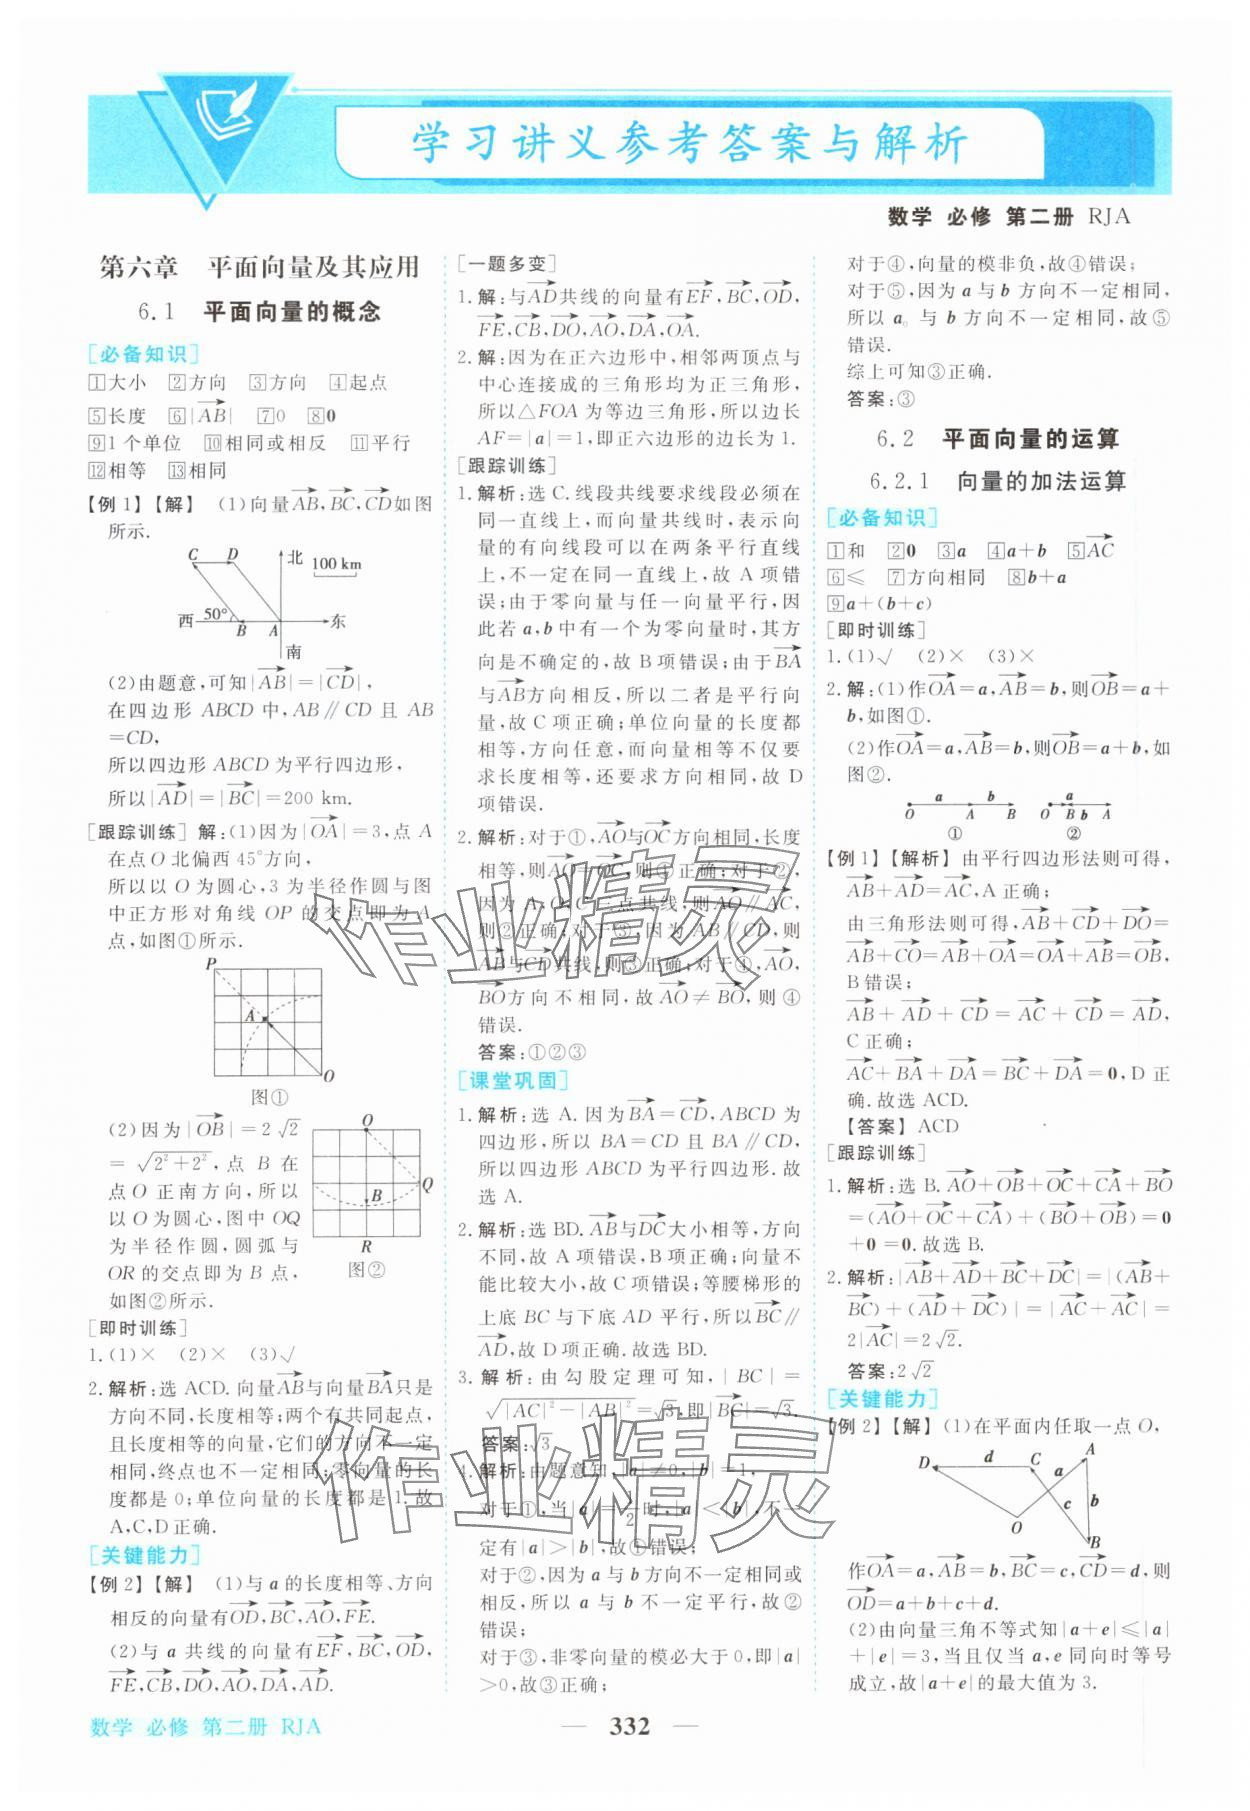 学习讲义参考答案与解析
数学 必修 第二册 RJA
第六章 平面向量及其应用
6.1 平面向量的概念
[必备知识]
1大小 2方向 3方向 4起点
5长度 6|AB| 7 0 8 0
9 1个单位 10相同或相反 11平行
12相等 13相同
【例1】【解】 (1)向量AB,BC,CD如图
所示.
C D 北 100 km
西 50° B A 东
南
(2)由题意,可知|AB|=|CD|,
在四边形 ABCD 中,AB∥CD 且 AB
=CD,
所以四边形 ABCD 为平行四边形,
所以|AD|=|BC|=200 km.
[跟踪训练] 解:(1)因为|OA|=3,点 A
在点 O 北偏西 45°方向,
所以以 O 为圆心,3 为半径作圆与图
中正方形对角线 OP 的交点即为 A
点,如图①所示.
P
A
O
图①
(2)因为|OB|=2√2
=√2²+2²,点 B 在
点 O 正南方向,所以
以 O 为圆心,图中 OQ
为半径作圆,圆弧与
OR 的交点即为 B 点,
如图②所示.
O
B Q
R
图②
[即时训练]
1.(1)× (2)× (3)√
2.解析:选 ACD.向量AB与向量BA只是
方向不同,长度相等;两个有共同起点,
且长度相等的向量,它们的方向不一定
相同,终点也不一定相同;零向量的长
度都是 0;单位向量的长度都是 1.故
A,C,D正确.
[关键能力]
【例2】【解】 (1)与 a 的长度相等、方向
相反的向量有OD,BC,AO,FE.
(2)与 a 共线的向量有EF,BC,OD,
FE,CB,DO,AO,DA,AD.
[一题多变]
1.解:与AD共线的向量有EF,BC,OD,
FE,CB,DO,AO,DA,OA.
2.解:因为在正六边形中,相邻两顶点与
中心连接成的三角形均为正三角形,
所以△FOA 为等边三角形,所以边长
AF=|a|=1,即正六边形的边长为 1.
[跟踪训练]
1.解析:选 C.线段共线要求线段必须在
同一直线上,而向量共线时,表示向
量的有向线段可以在两条平行直线
上,不一定在同一直线上,故 A 项错
误;由于零向量与任一向量平行,因
此若 a,b 中有一个为零向量时,其方
向是不确定的,故 B项错误;由于BA
与AB方向相反,所以二者是平行向
量,故 C 项正确;单位向量的长度都
相等,方向任意,而向量相等不仅要
求长度相等,还要求方向相同,故 D
项错误.
2.解析:对于①,AO与OC方向相同,长度
相等,则AO=OC,则①正确;对于②,
因为 A,O,C 三点共线,则AO∥AC,
则②正确;对于③,因为 AB∥CD,则
AB与CD共线,则③正确;对于④,AO,
BO方向不相同,故AO≠BO,则④
错误.
答案:①②③
[课堂巩固]
1.解析:选 A.因为BA=CD,ABCD 为
四边形,所以 BA=CD 且 BA∥CD,
所以四边形 ABCD 为平行四边形.故
选 A.
2.解析:选 BD.AB与DC大小相等,方向
不同,故 A 项错误,B 项正确;向量不
能比较大小,故 C 项错误;等腰梯形的
上底 BC 与下底 AD 平行,所以BC∥
AD,故 D 项正确.故选 BD.
3.解析:由勾股定理可知,|BC|=
√|AC|²-|AB|²=√3,即|BC|=√3.
答案:√3
4.解析:由题意知,|a|≠0,|b|=1,
对于①,当|a|=1/2时,|a|<|b|,不一
定有|a|>|b|,故①错误;
对于②,因为 a 与 b 不一定相同或
相反,所以 a 与 b 不一定平行,故②
错误;
对于③,非零向量的模必大于 0,即|a|
>0,故③正确;
对于④,向量的模非负,故④错误;
对于⑤,因为 a 与 b 方向不一定相同,
所以 a₀ 与 b 方向不一定相同,故⑤
错误.
综上可知③正确.
答案:③
6.2 平面向量的运算
6.2.1 向量的加法运算
[必备知识]
1和 2 0 3 a 4 a+b 5 AC
6≤ 7方向相同 8 b+a
9 a+(b+c)
[即时训练]
1.(1)√ (2)× (3)×
2.解:(1)作OA=a,AB=b,则OB=a+
b,如图①.
(2)作OA=a,AB=b,则OB=a+b,如
图②.
a b a
O A B O B b A
① ②
【例1】【解析】 由平行四边形法则可得,
AB+AD=AC,A 正确;
由三角形法则可得,AB+CD+DO=
AB+CO=AB+OA=OA+AB=OB,
B 错误;
AB+AD+CD=AC+CD=AD,
C 正确;
AC+BA+DA=BC+DA=0,D 正
确.故选 ACD.
【答案】 ACD
[跟踪训练]
1.解析:选 B.AO+OB+OC+CA+BO
=(AO+OC+CA)+(BO+OB)=0
+0=0.故选 B.
2.解析:|AB+AD+BC+DC|=|(AB+
BC)+(AD+DC)|=|AC+AC|=
2|AC|=2√2.
答案:2√2
[关键能力]
【例2】【解】 (1)在平面内任取一点 O,
D d C A
a c b
O B
作OA=a,AB=b,BC=c,CD=d,则
OD=a+b+c+d.
(2)由向量三角不等式知|a+e|≤|a|
+|e|=3,当且仅当 a,e 同向时等号
成立,故|a+e|的最大值为 3.
作业精灵
作业精灵
数学 必修 第二册 RJA
— 332 —